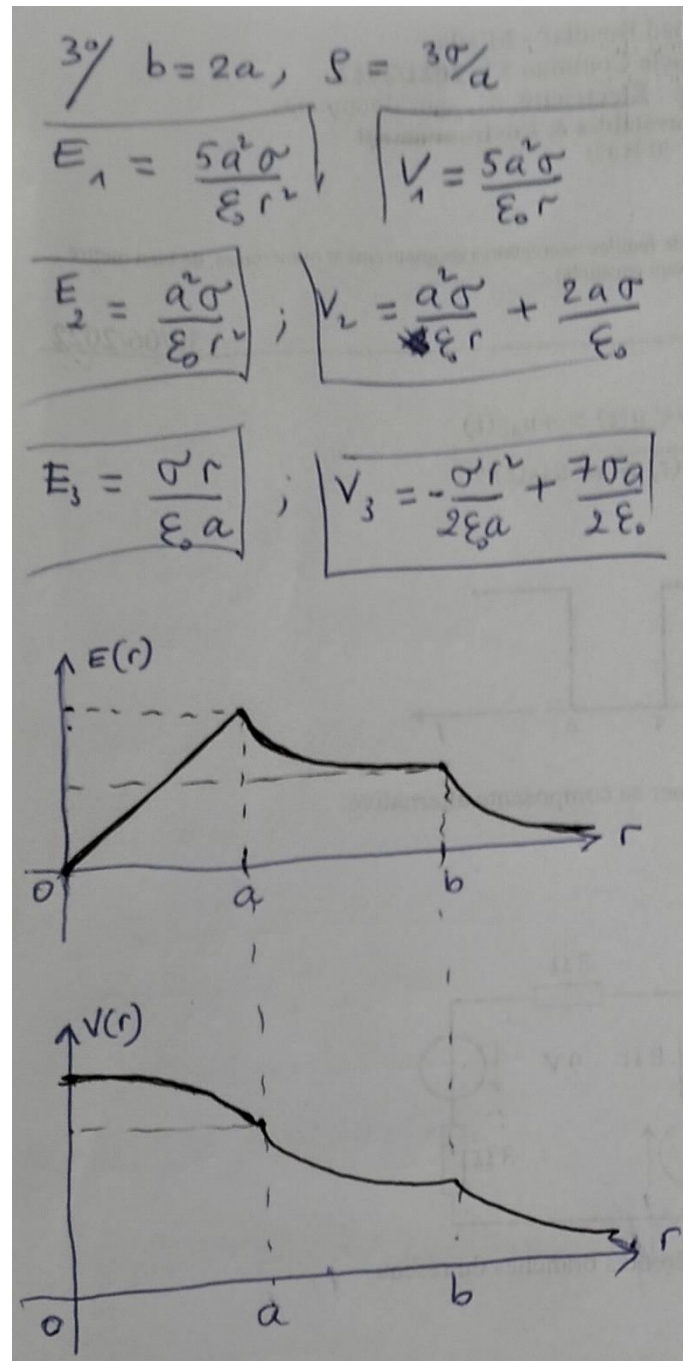 3°/ b = 2a, ρ = 3σ/a
E₁ = 5a²σ/ε₀r² , V₁ = 5a²σ/ε₀r
E₂ = a²σ/ε₀r² ; V₂ = a²σ/ε₀r + 2aσ/ε₀
E₃ = σr/ε₀a ; V₃ = -σr²/2ε₀a + 7σa/2ε₀
E(r)
r
0 a b
V(r)
r
0 a b